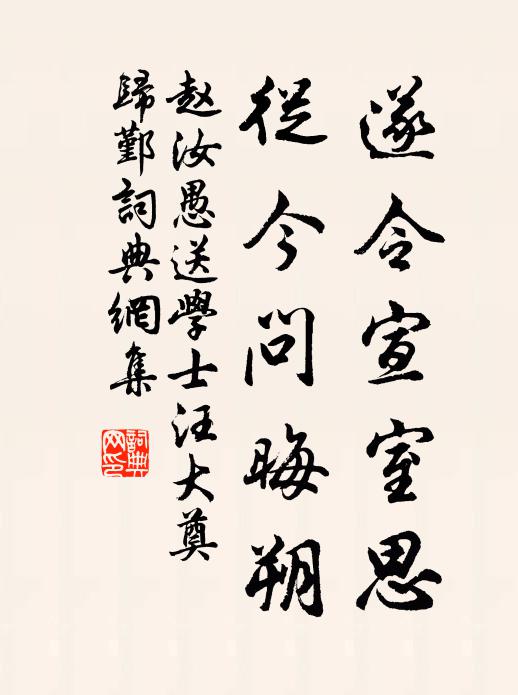 遂令宣室思
從今問晦朔
赵汝愚送學士汪大奠
歸鄞詞典網集
詞典
网印